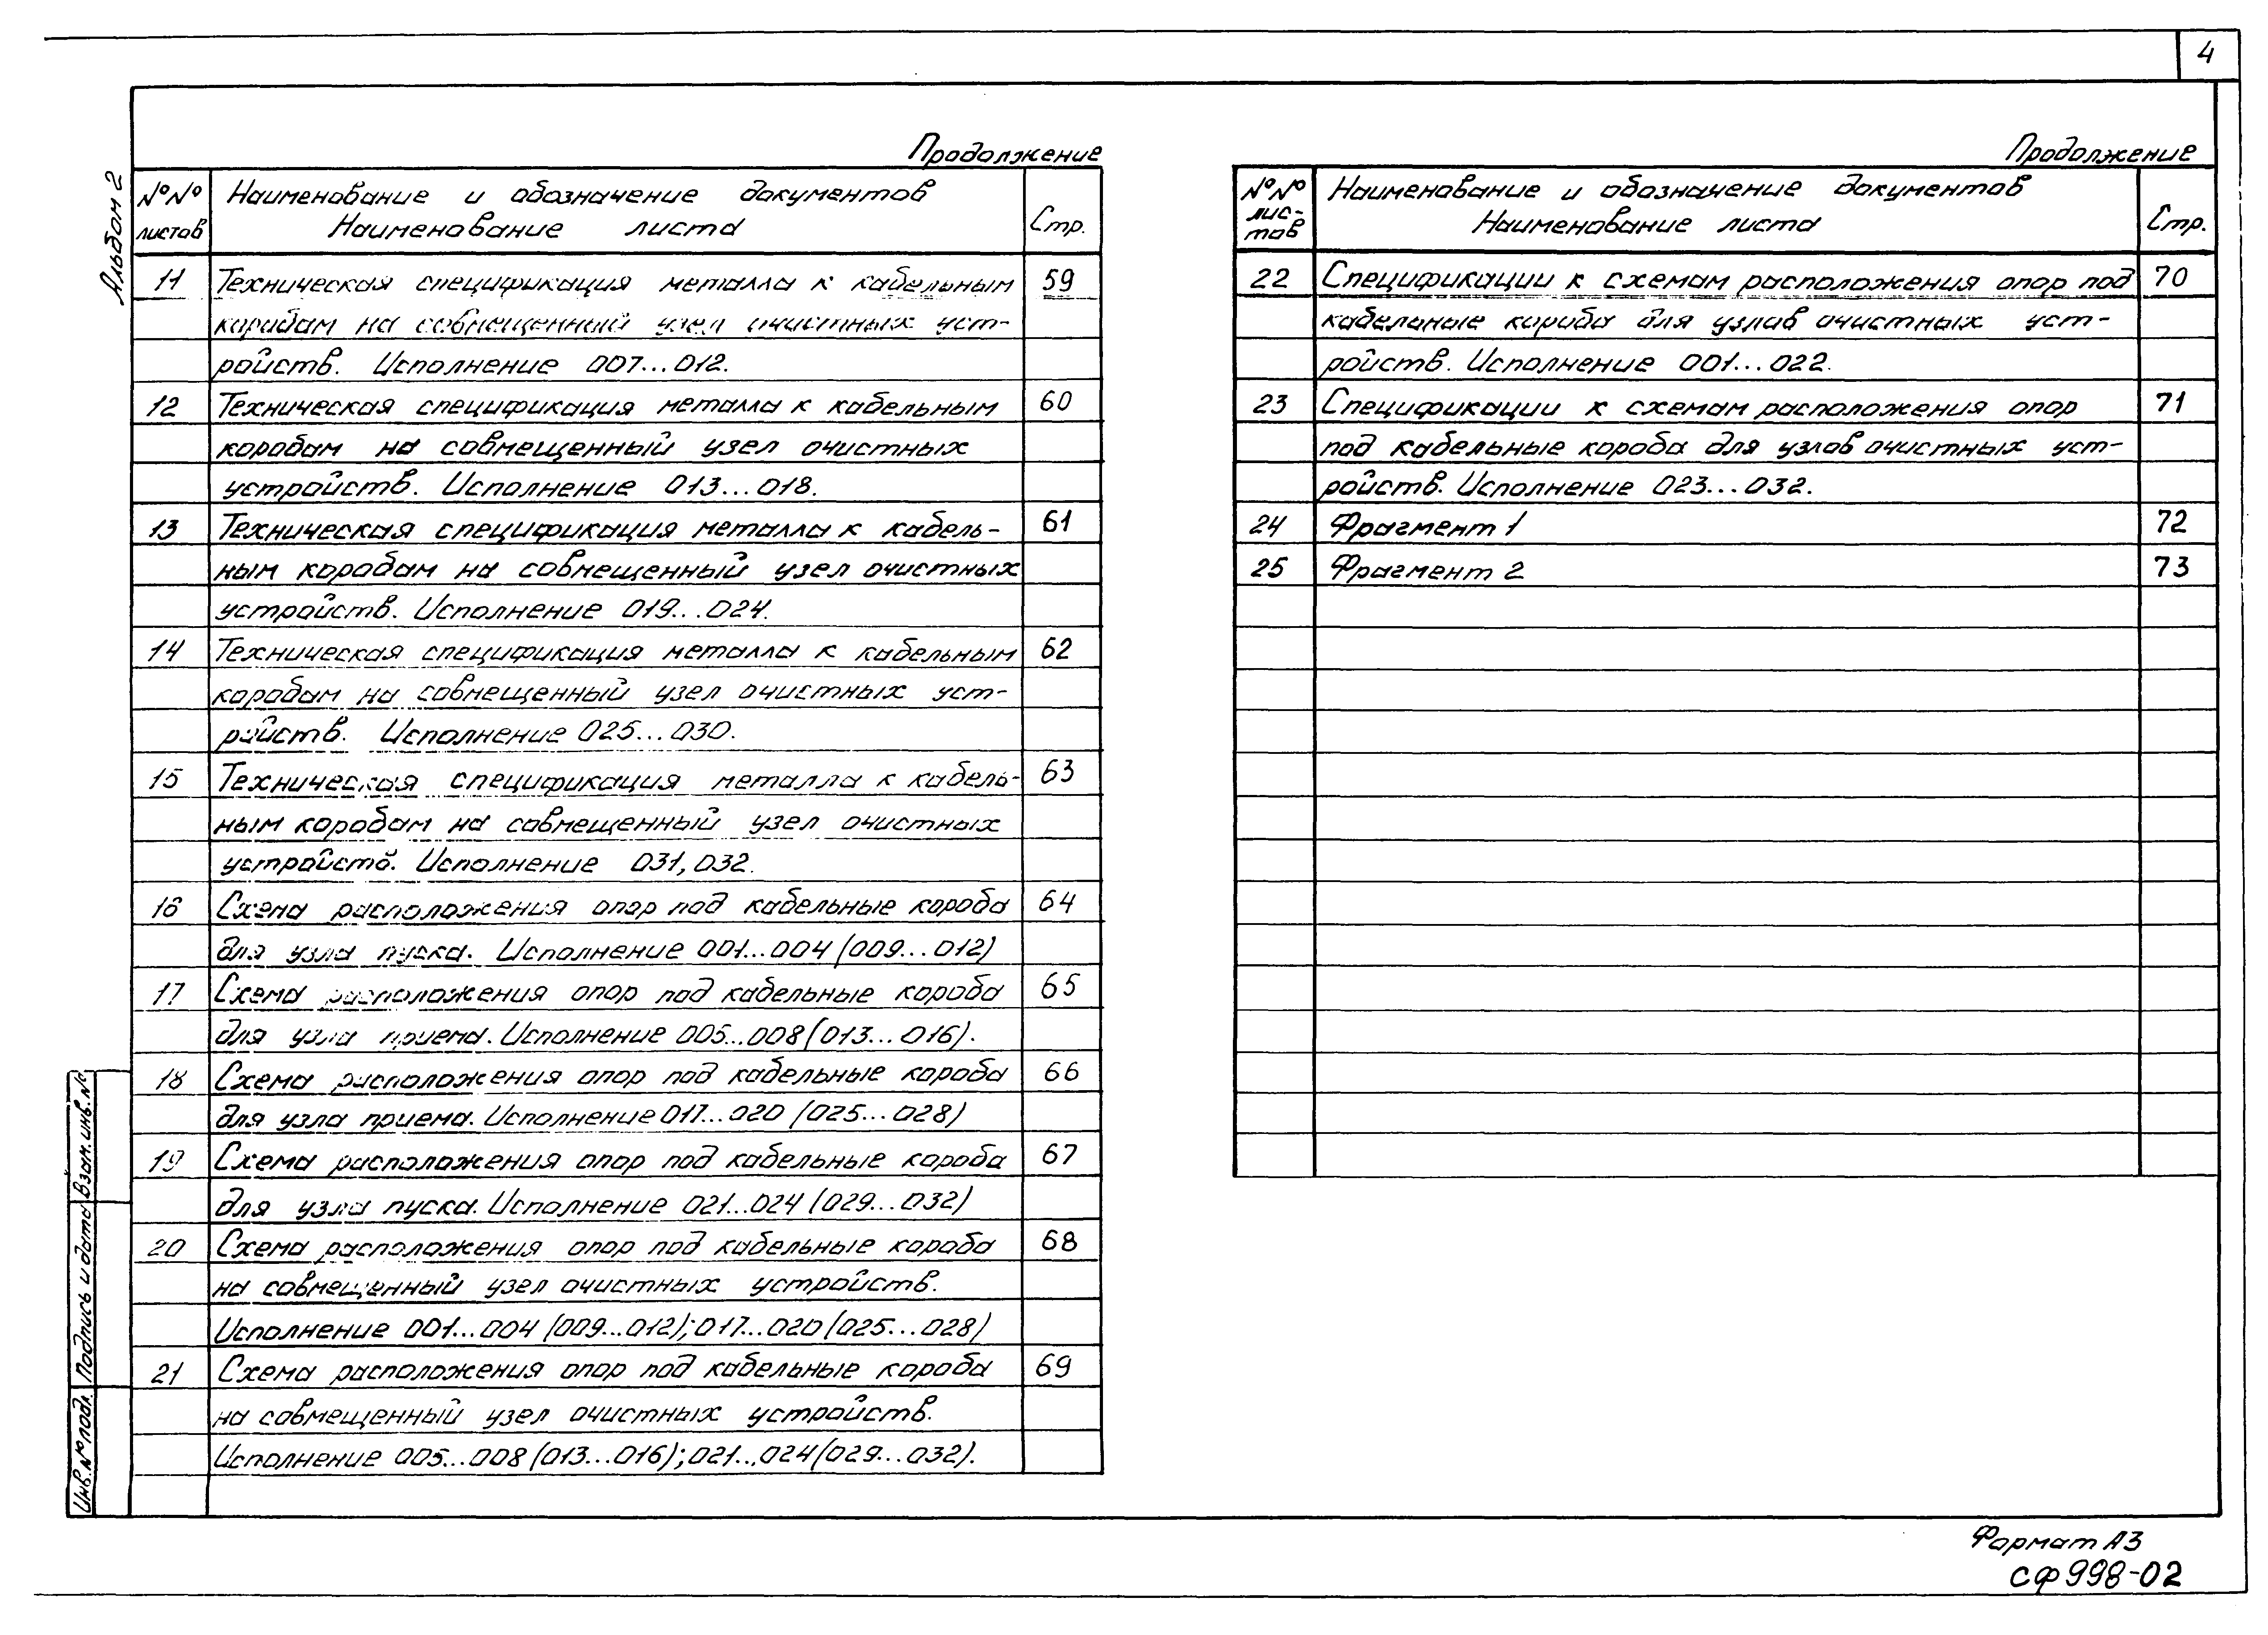 4
Альбом 2
Продолжение
№№ листов
Наименование и обозначение документов
Наименование листа
Стр.
11 Техническая спецификация металла к кабельным 59
коробам на совмещенный узел очистных уст-
ройств. Исполнение 007...012.
12 Техническая спецификация металла к кабельным 60
коробам на совмещенный узел очистных
устройств. Исполнение 013...018.
13 Техническая спецификация металла к кабель- 61
ным коробам на совмещенный узел очистных
устройств. Исполнение 019...024.
14 Техническая спецификация металла к кабельным 62
коробам на совмещенный узел очистных уст-
ройств. Исполнение 025...030.
15 Техническая спецификация металла к кабель- 63
ным коробам на совмещенный узел очистных
устройств. Исполнение 031, 032.
16 Схема расположения опор под кабельные короба 64
для узла пуска. Исполнение 001...004 (009...012)
17 Схема расположения опор под кабельные короба 65
для узла приема. Исполнение 005...008 (013...016).
18 Схема расположения опор под кабельные короба 66
для узла приема. Исполнение 017...020 (025...028)
19 Схема расположения опор под кабельные короба 67
для узла пуска. Исполнение 021...024 (029...032)
20 Схема расположения опор под кабельные короба 68
на совмещенный узел очистных устройств.
Исполнение 001...004 (009...012); 017...020 (025...028)
21 Схема расположения опор под кабельные короба 69
на совмещенный узел очистных устройств.
Исполнение 005...008 (013...016); 021...024 (029...032).
Продолжение
№№ лис-
тов
Наименование и обозначение документов
Наименование листа
Стр.
22 Спецификации к схемам расположения опор под 70
кабельные короба для узлов очистных уст-
ройств. Исполнение 001...022.
23 Спецификации к схемам расположения опор 71
под кабельные короба для узлов очистных уст-
ройств. Исполнение 023...032.
24 Фрагмент 1 72
25 Фрагмент 2 73
Взам. инв. №
Подпись и дата
Инв. № подл.
Формат А3
СФ 998-02